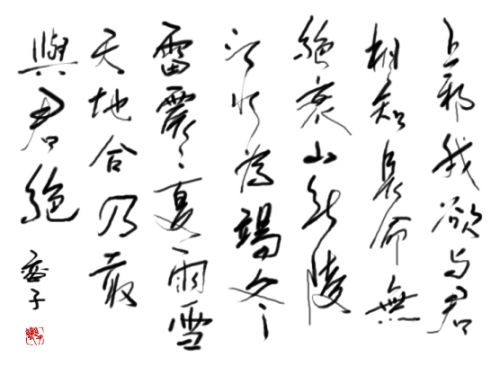 上邪我欲与君
相知長命無
絶衰山无陵
江水為竭冬
雷震〻夏雨雪
天地合乃敢
與君絶